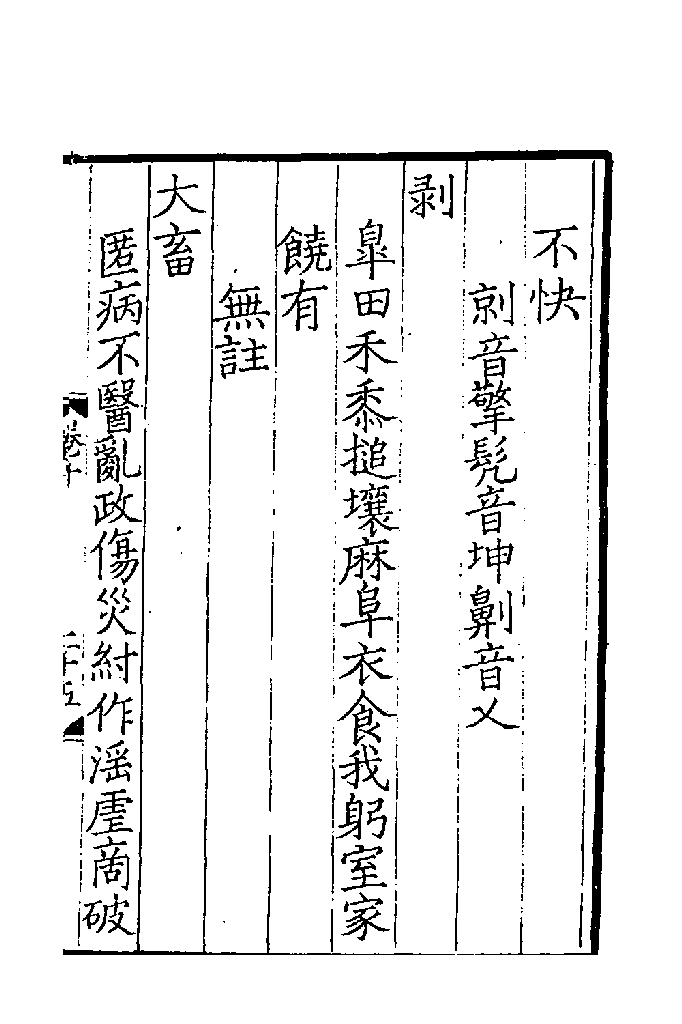 不快
剠音擎髠音坤劓音乂
剥
臯田禾黍搥壤麻阜衣食我躬室家
饒有
無註
大畜
匿病不醫亂政傷災紂作淫虐商破
卷十
二十五